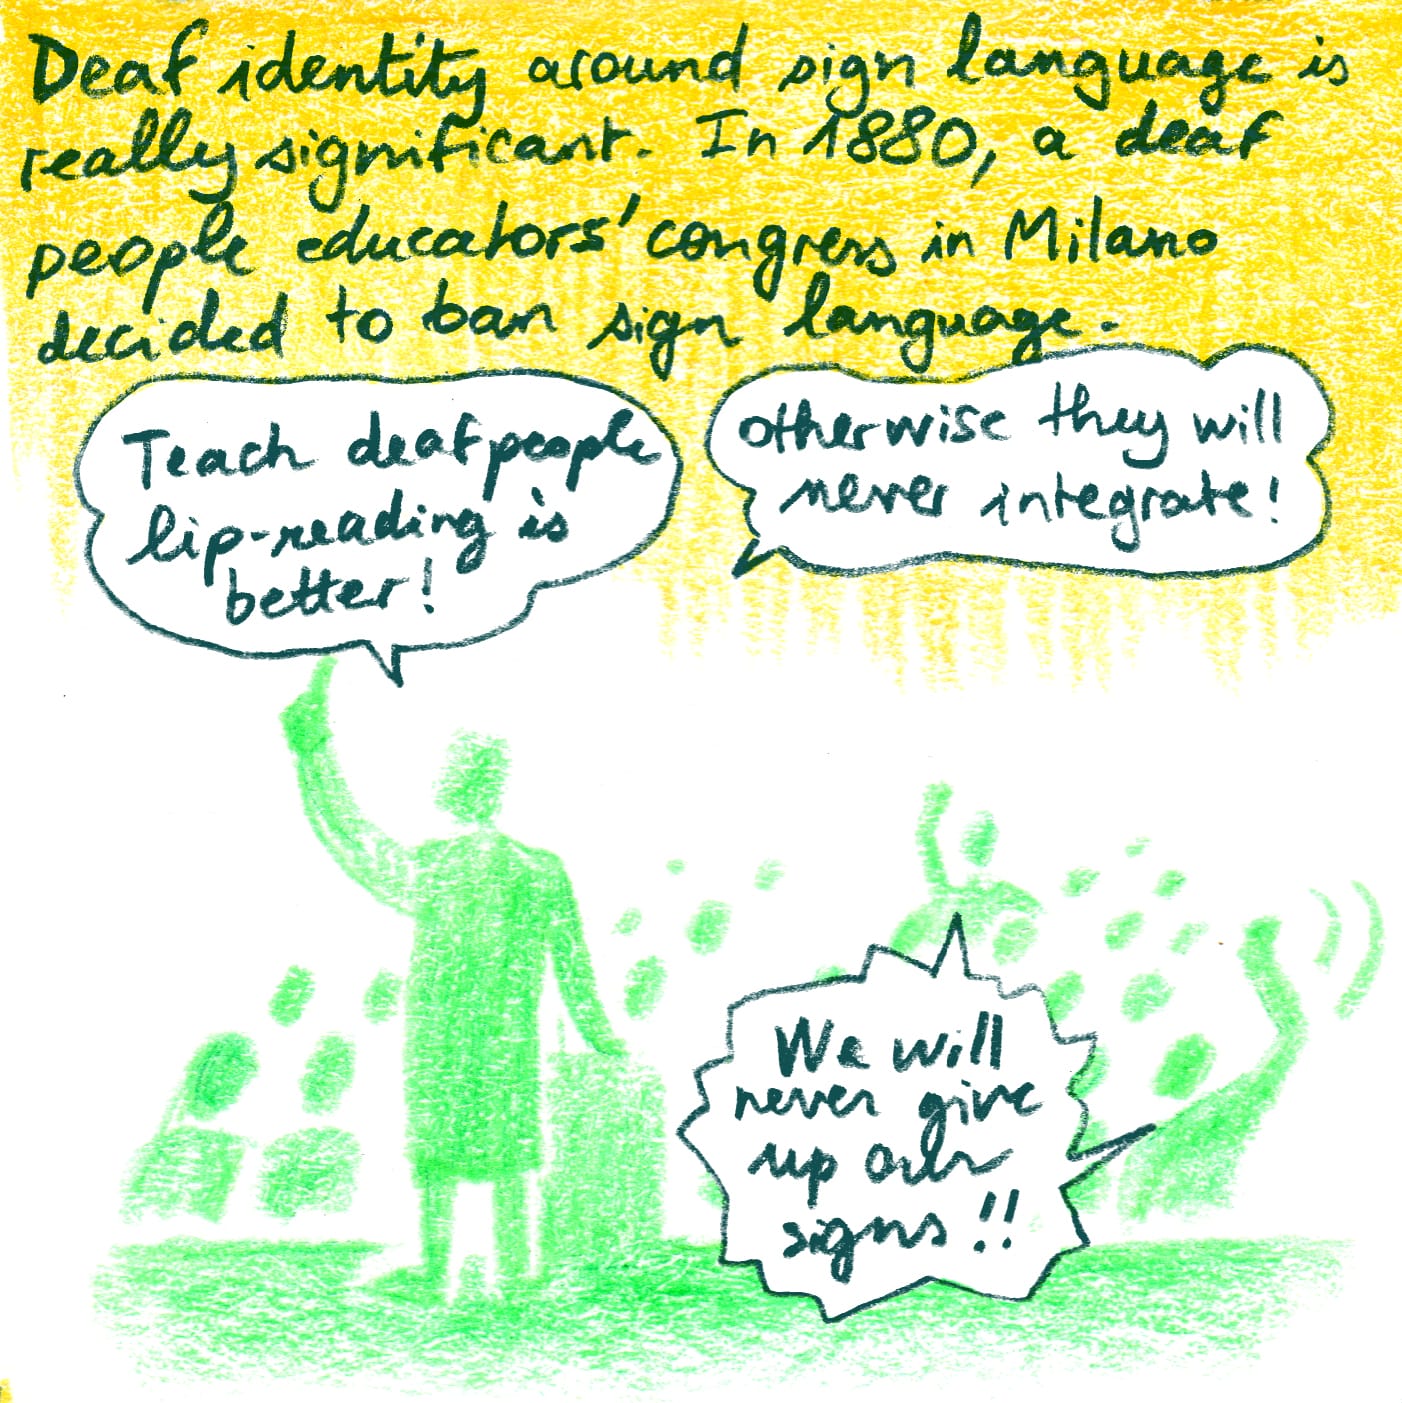 Deaf identity around sign language is
really significant. In 1880, a deaf
people educators' congress in Milano
decided to ban sign language.
Teach deaf people
lip-reading is
better!
otherwise they will
never integrate!
We will
never give
up our
signs!!